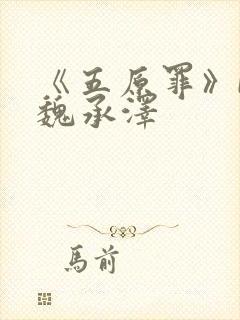 《五原罪》
魏承澤
馬前